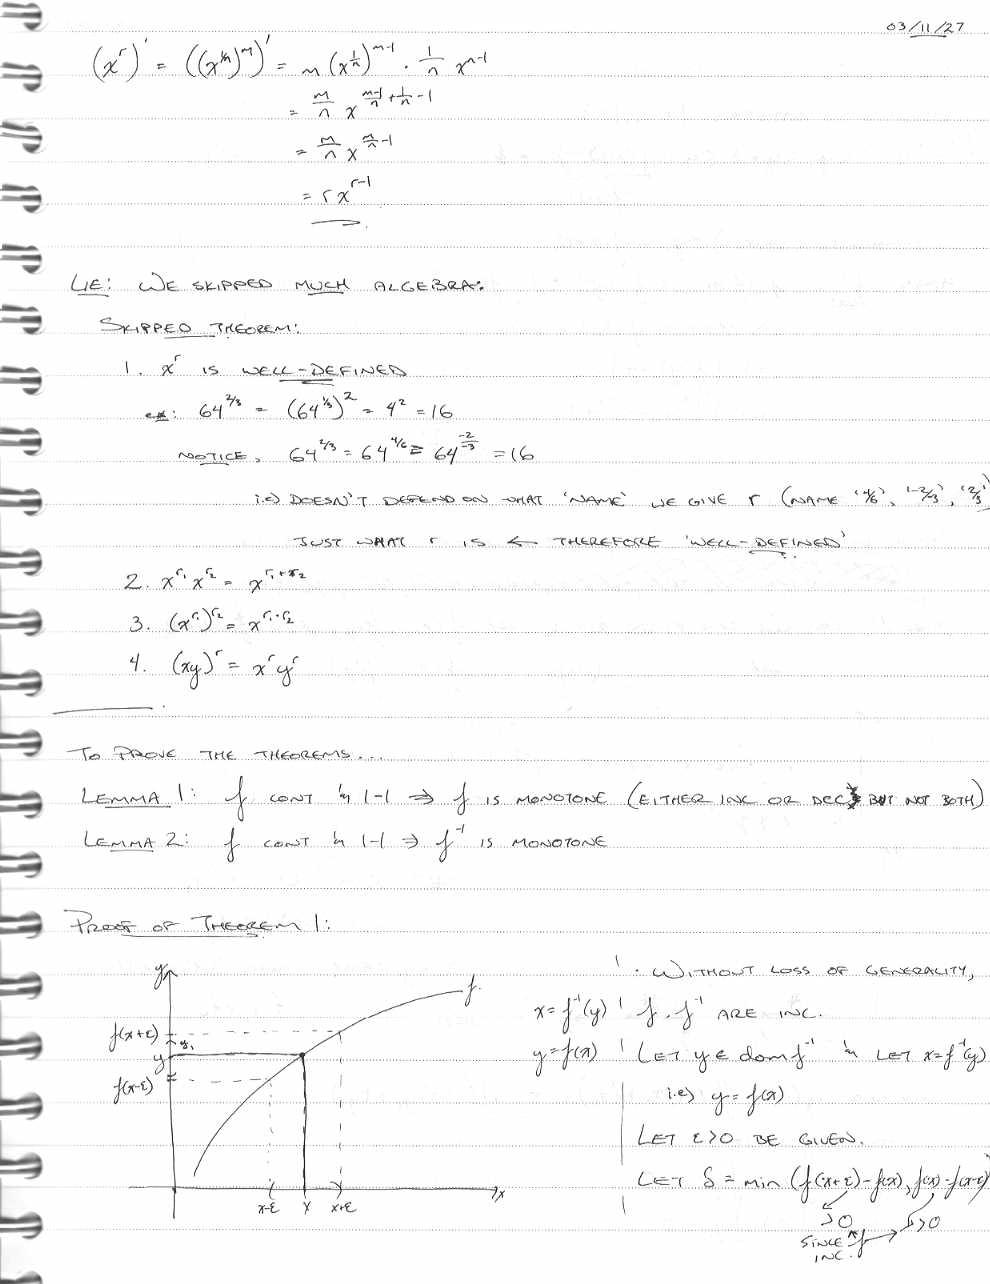 03/11/27
(x^r)' = ((x^{1/n})^m)' = m (x^{1/n})^{m-1} · 1/n x^{n-1}
= m/n x^{(m-1)/n + 1/n - 1}
= m/n x^{m/n - 1}
= r x^{r-1}
LIE: WE SKIPPED MUCH ALGEBRA:
SKIPPED THEOREM:
1. x^r IS WELL-DEFINED
ex: 64^{2/3} = (64^{1/3})^2 = 4^2 = 16
NOTICE, 64^{2/3} = 64^{4/6} = 64^{-2/-3} = 16
i.e) DOESN'T DEPEND ON WHAT 'NAME' WE GIVE r (NAME '4/6', '-2/-3', '2/3')
JUST WHAT r IS ← THEREFORE 'WELL-DEFINED'
2. x^{r_1} x^{r_2} = x^{r_1 + r_2}
3. (x^{r_1})^{r_2} = x^{r_1 · r_2}
4. (xy)^r = x^r y^r
TO PROVE THE THEOREMS...
LEMMA 1: f CONT 'n 1-1 ⇒ f IS MONOTONE (EITHER INC OR DEC BUT NOT BOTH)
LEMMA 2: f CONT 'n 1-1 ⇒ f^{-1} IS MONOTONE
PROOF OF THEOREM 1:
y
f
f(x+ε)
y_1
y
f(x-ε)
x-ε x x+ε
x
· WITHOUT LOSS OF GENERALITY,
x = f^{-1}(y) f, f^{-1} ARE INC.
y = f(x) LET y ∈ dom f^{-1} 'n LET x = f^{-1}(y)
i.e) y = f(x)
LET ε > 0 BE GIVEN.
LET δ = min (f(x+ε) - f(x), f(x) - f(x-ε))
>0 >0
SINCE f
INC.